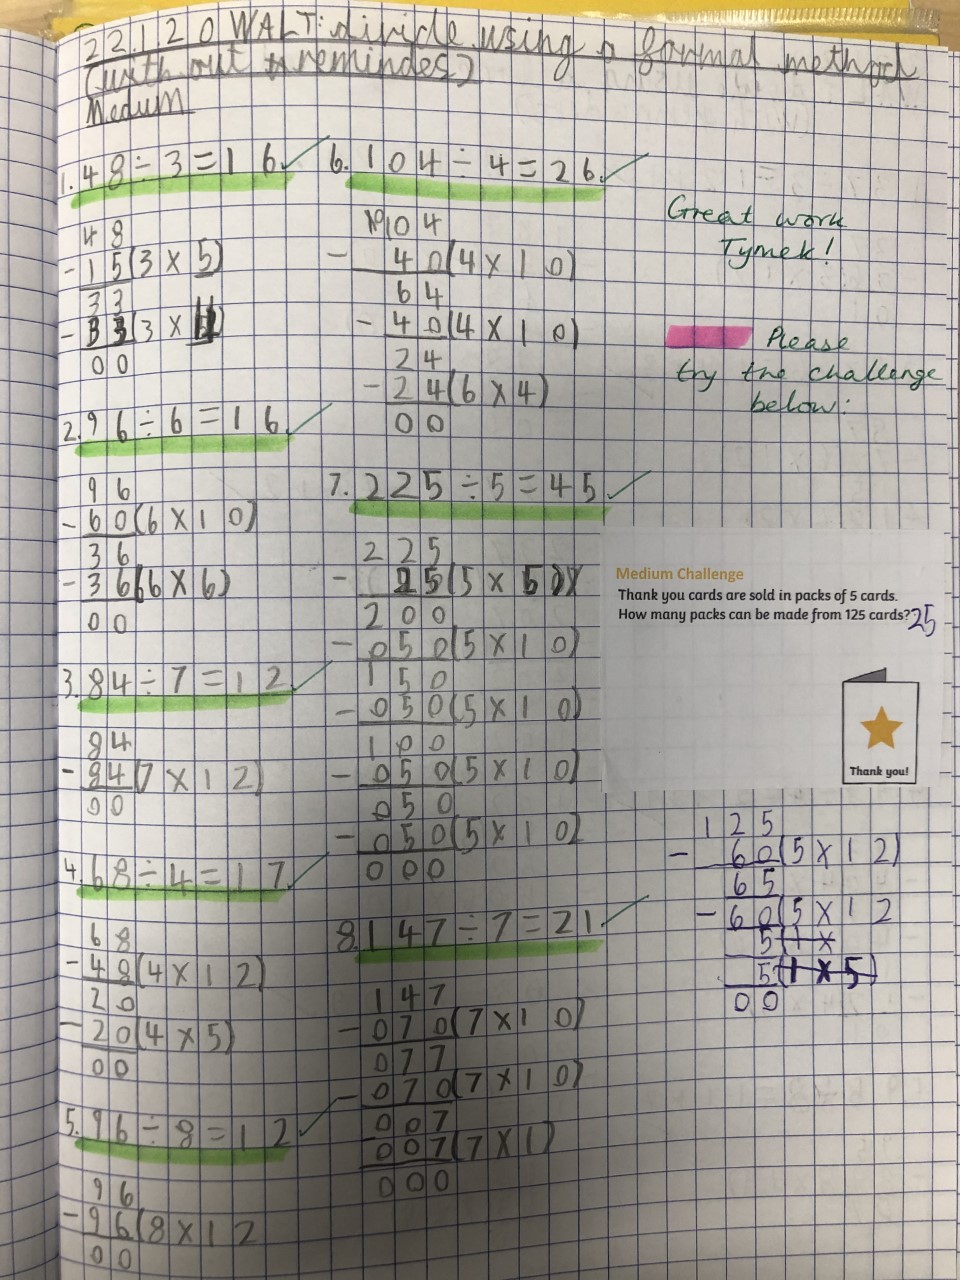 22.1 20 WALT: divide using a formal method
(without remindes)
Medium
1. 48 ÷ 3 = 16
48
- 15 (3 x 5)
33
- 33 (3 x 11)
00
2. 96 ÷ 6 = 16
96
- 60 (6 x 10)
36
- 36 (6 x 6)
00
3. 84 ÷ 7 = 12
84
- 84 (7 x 12)
00
4. 68 ÷ 4 = 17
68
- 48 (4 x 12)
20
- 20 (4 x 5)
00
5. 96 ÷ 8 = 12
96
- 96 (8 x 12
00
6. 104 ÷ 4 = 26
104
- 40 (4 x 10)
64
- 40 (4 x 10)
24
- 24 (6 x 4)
00
7. 225 ÷ 5 = 45
225
- 25 (5 x 5)
200
- 050 (5 x 10)
150
- 050 (5 x 10)
100
- 050 (5 x 10)
050
- 050 (5 x 10)
000
8. 147 ÷ 7 = 21
147
- 070 (7 x 10)
077
- 070 (7 x 10)
007
007 (7 x 1)
000
Great work
Tymek!
Please
try the challenge
below:
Medium Challenge
Thank you cards are sold in packs of 5 cards.
How many packs can be made from 125 cards? 25
Thank you!
125
- 60 (5 x 12)
65
- 60 (5 x 12
5 (1 x
5 (1 x 5)
00